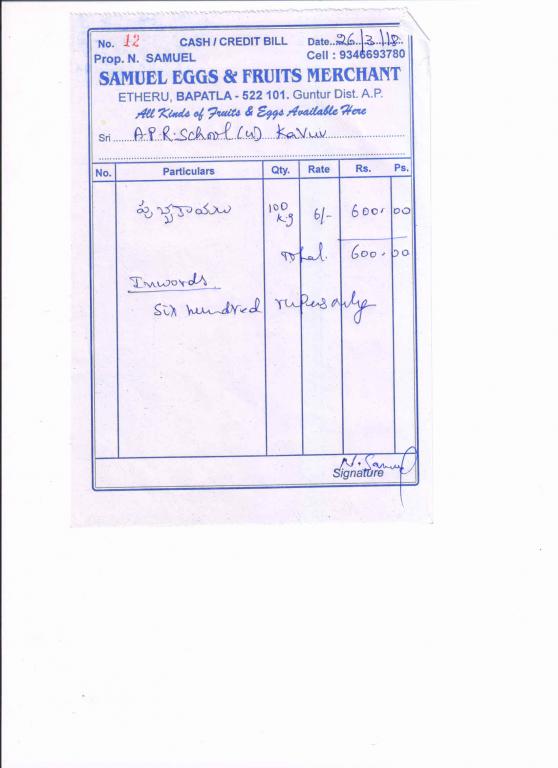 No. 12 CASH / CREDIT BILL Date..26/3/18..
Prop. N. SAMUEL Cell : 9346693780
SAMUEL EGGS & FRUITS MERCHANT
ETHERU, BAPATLA - 522 101. Guntur Dist. A.P.
All Kinds of Fruits & Eggs Available Here
Sri A.P.R. School (W) Kavuru
No. Particulars Qty. Rate Rs. Ps.
పుచ్చకాయలు 100 kg 6/- 600. 00
Total. 600.00
Inwords
Six hundred rupees only
N. Samuel
Signature